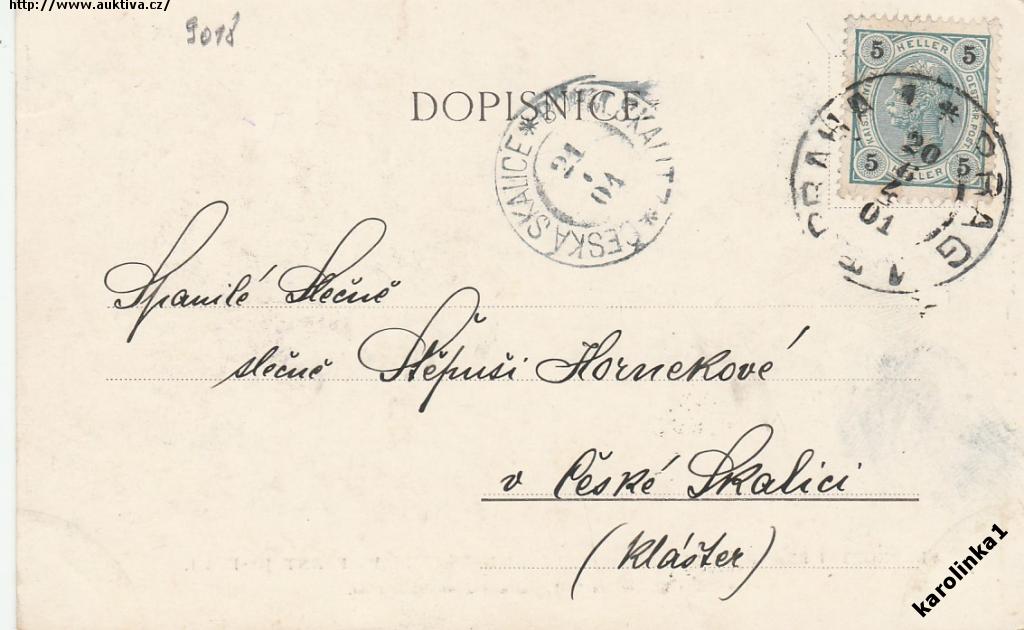 http://www.auktiva.cz/
9018
DOPISNICE
5 HELLER 5
5 HELLER 5
ČESKÁ SKALICE * SKALITZ *
21
01
PRAG 1 * PRAHA 1 *
20
01
Spanilé Slečně
slečně Štěpuši Hornekové
v České Skalici
(Klášter)
karolinka1